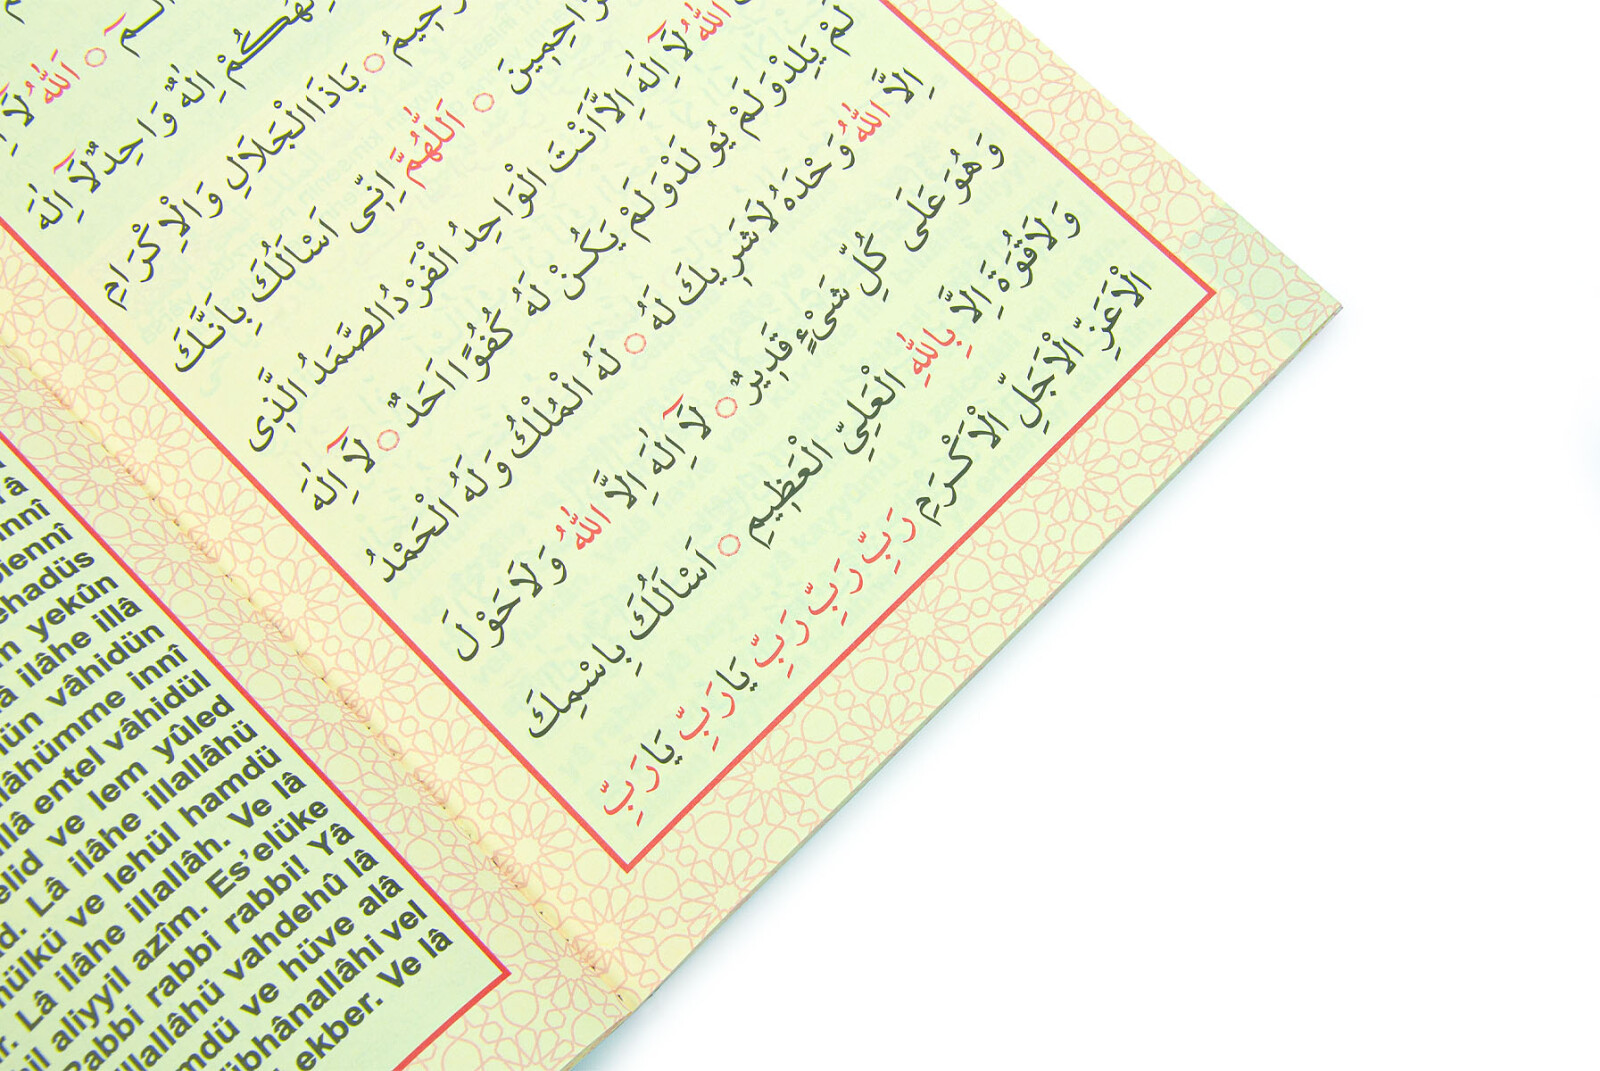 اَللّٰهُ لَآ
اِلٰهٌ وَاحِدٌ لَآ اِلٰهَ
يَاذَا الْجَلَالِ وَالْاِكْرَامِ
اَللّٰهُمَّ اِنِّى اَسْاَلُكَ بِاَنَّكَ
اللّٰهُ لَآ اِلٰهَ اِلَّا اَنْتَ الْوَاحِدُ الْفَرْدُ الصَّمَدُ الَّذِى
لَمْ يَلِدْ وَلَمْ يُولَدْ وَلَمْ يَكُنْ لَهُ كُفُوًا اَحَدٌ ○ لَآ اِلٰهَ
اِلَّا اللّٰهُ وَحْدَهُ لَا شَرِيكَ لَهُ ○ لَهُ الْمُلْكُ وَلَهُ الْحَمْدُ
وَهُوَ عَلَى كُلِّ شَىْءٍ قَدِيرٌ ○ لَآ اِلٰهَ اِلَّا اللّٰهُ وَلَا حَوْلَ
وَلَا قُوَّةَ اِلَّا بِاللّٰهِ الْعَلِيِّ الْعَظِيمِ ○ اَسْاَلُكَ بِاسْمِكَ
الْاَعَزِّ الْاَجَلِّ الْاَكْرَمِ رَبِّ رَبِّ رَبِّ يَارَبِّ يَارَبِّ
yekûn
ilâhe illâ
vâhidün
innî
entel vâhidül
ve lem yûled
Lâ ilâhe illallâhü
ve lehül hamdü
Lâ ilâhe illallâh. Ve lâ
aliyyil azîm. Es'elüke
Rabbi rabbi rabbi! Yâ
vahdehû lâ
ve hüve alâ
vel
ekber. Ve lâ